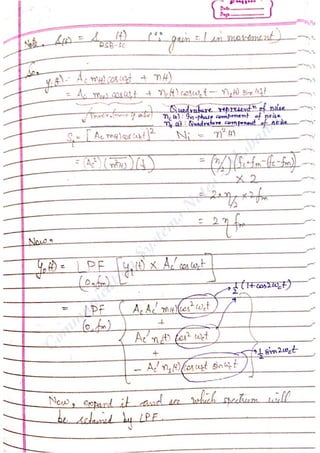 Date
Page
Note, S(t) = S (t) (∵ gain = 1 in movement)
DSB-SC
So,
y(t) = Ac m(t) cos ωct + n(t)
= Ac m(t) cos ωct + nI(t) cos ωct - nQ(t) sin ωct
Quadrature represent^n of noise
: In-phase component of noise
: Quadrature component of noise
Si = [Ac m(t) cos ωct]² Ni = n²(t)
= (Ac²) (m²(t)) (1/2) = (η/2) (fc+fm-(fc-fm))
× 2
2×η/2 × 2fm
= 2η fm
Now,
y0(t) = LPF [yi(t) × Ac' cos ωct]
(0, fm)
→ 1/2 (1+cos2ωct)
= LPF { Ac Ac' m(t) cos² ωct
(0, fm) +
Ac' nI(t) cos² ωct
+ → 1/2 sin2ωct
- Ac' nQ(t) cos ωct sin ωct }
Now, expand it and see which spectrum will
be retained by LPF.